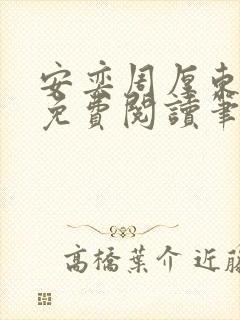 安奕周厚東
免費閱讀筆
高橋葉介 近藤